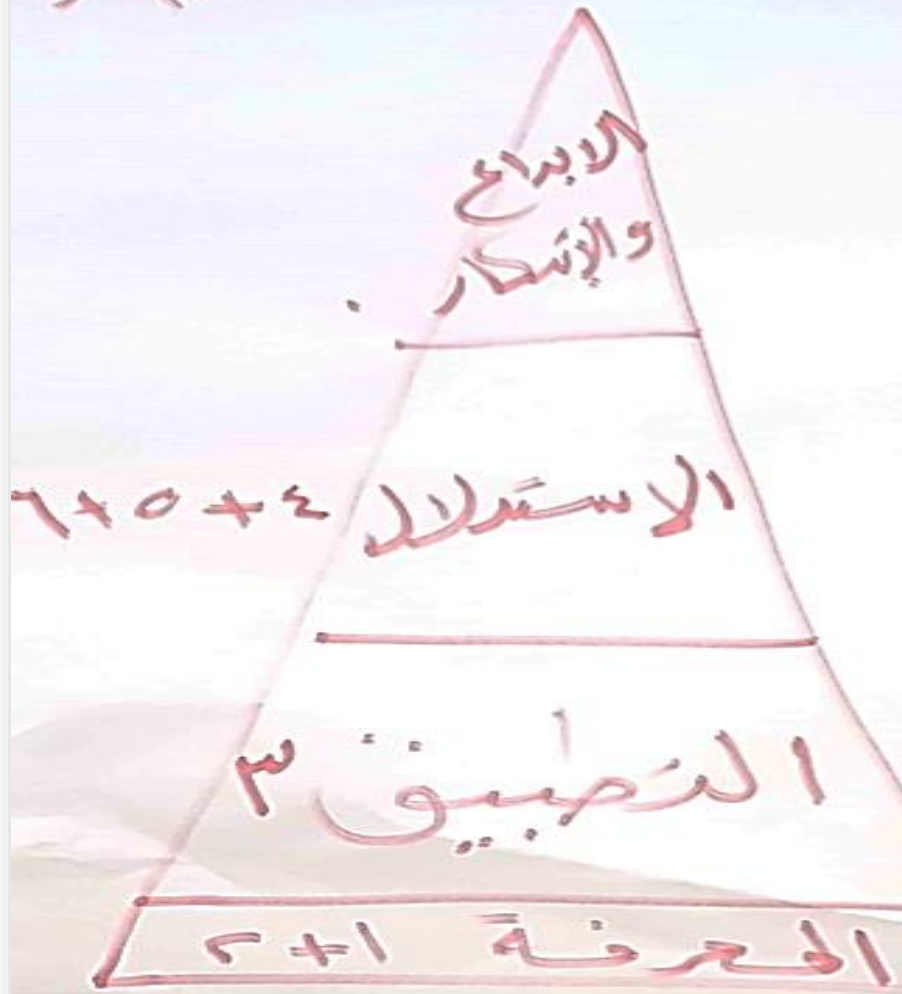 الابداع
والإبتكار
الاستدلال ٤+٥+٦
التطبيق ٣
المعرفة ١+٢